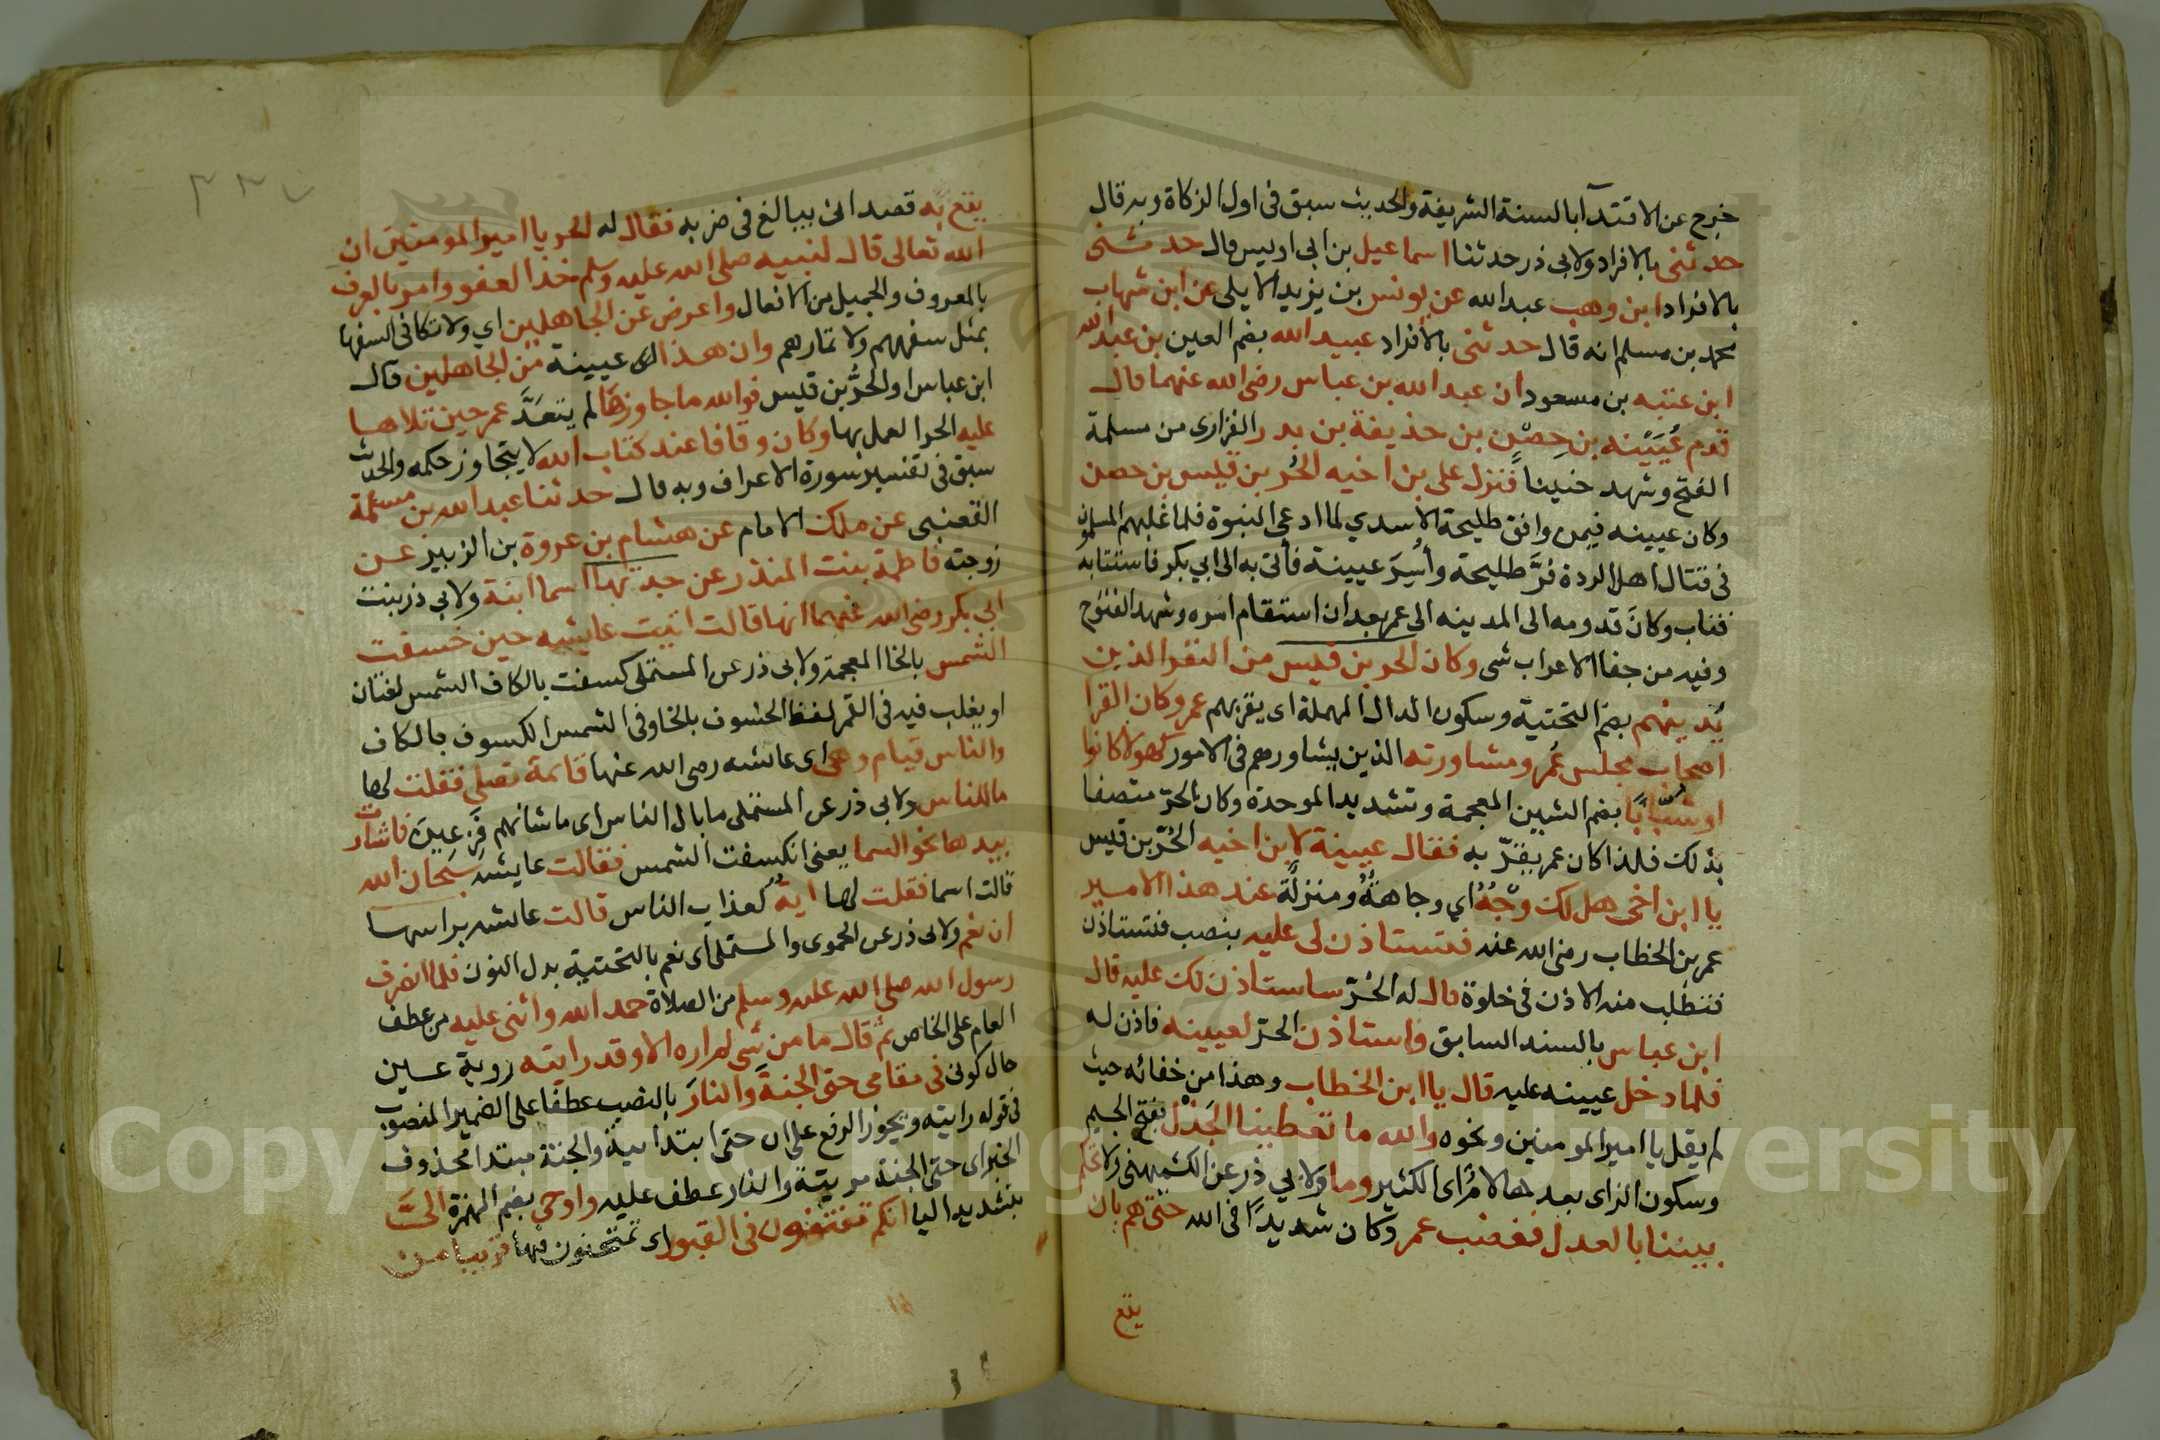 خرج عن الاقتدآ بالسنة الشريفة والحديث سبق فى اول الزكاة وبه قال
حدثنى بالافراد ولابى ذر حدثنا اسماعيل بن ابى اويس قال حدثنى
بالافراد ابن وهب عبد الله عن يونس بن يزيد الايلى عن ابن شهاب
محمد بن مسلم انه قال حدثنى بالأفراد عبيد الله بضم العين بن عبد الله
ابن عتبه بن مسعود ان عبد الله بن عباس رضى الله عنهما قال
قدم عُيَيْنه بن حِصْن بن حذيفة بن بدر الفزارى من مسلمة
الفتح وشهد حنينا فنزل على بن اخيه الحُر بن قيس بن حصن
وكان عيينه فيمن وافق طليحة الاسدي لما ادعى النبوة فلما غلبهم المسلمون
فى قتال اهل الردة فُرَّ طليحة وأُسِرَ عيينة فأتى به الى ابي بكر فاستتابه
فتاب وكان قدومه الى المدينه الى عمر بعد ان استقام امره وشهد الفتوح
وفيه من جفا الاعراب شى وكان الحر بن قيس من النفر الذين
يُدينهم بضم التحتية وسكون الدال المهملة اى يقربهم عمر وكان القرا
اصحاب مجلس عُمر ومشاورته الذين يشاورهم فى الامور كهولا كانوا
او شُبّابًا بضم الشين المعجمة وتشديد الموحدة وكان الحرّ متصفا
بذلك فلذا كان عمر يقرّبه فقال عيينة لابن اخيه الحُرّ بن قيس
يا ابن اخى هل لك وَجْهٌ اي وجاهةٌ ومنزلةٌ عند هذا الامير
عمر بن الخطاب رضى الله عنه فتستاذن لى عليه بنصب فتستاذن
فتطلب منه الاذن فى خلوة قال له الحُرّ ساستاذن لك عليه قال
ابن عباس بالسند السابق واستاذن الحرّ لعيينه فاذن له
فلما دخل عيينه عليه قال يا ابن الخطاب وهذا من جفائه حيث
لم يقل يا امير المومنين ونحوه والله ما تعطينا الجَزْل بفتح الجيم
وسكون الزاى بعدها لامٌ اى الكثير وما ولابي ذر عن الكشميهنى ولا تحكم
بيننا بالعدل فغضب عمر وكان شديدًا فى الله حتى هم بان
يقع
٣٣٧
يقع به قصد ان يبالغ فى ضربه فقال له الحر يا امير المومنين ان
الله تعالى قال لنبيه صلى الله عليه وسلم خذ العفو وامر بالعرف
بالمعروف والجميل من الافعال واعرض عن الجاهلين اي ولا تكافى السفها
بمثل سفههم ولا تمارهم وان هذا اى عيينة من الجاهلين قال
ابن عباس او الحُرُّ بن قيس فوالله ما جاوزها لم يتعَدَّ عمر حين تلاها
عليه الحر العمل بها وكان وقافا عند كتاب الله لا يتجاوز حكمه والحديث
سبق فى تفسير سورة الاعراف وبه قال حدثنا عبد الله بن مسلمة
القعنبى عن ملك الامام عن هشام بن عروة بن الزبير عن
زوجته فاطمة بنت المنذر عن جدتها اسما ابنة ولابي ذر بنت
ابى بكر رضى الله عنهما انها قالت اتيت عايشه حين خسفت
الشمس بالخا المعجمة ولابى ذر عن المستملى كسفت بالكاف الشمس لغتان
او يغلب فيه فى القمر لفظ الخسوف بالخا وفى الشمس الكسوف بالكاف
والناس قيام وهى اى عائشه رضى الله عنها قائمة تصلى فقلت لها
ما للناس ولابى ذر عن المستملى ما بال الناس اى ما شانهم فَزِعِينَ فاشارت
بيدها نحو السما يعنى انكسفت الشمس فقالت عايشه سبحان الله
قالت اسما فقلت لها ايةٌ لعذاب الناس قالت عائشه براسها
ان نعم ولابى ذر عن الحموى والمستملى اى نعم بالتحتية بدل النون فلما انصرف
رسول الله صلى الله عليه وسلم من الصلاة حمد الله واثنى عليه من عطف
العام على الخاص ثم قال ما من شى لم اره الا وقد رايته روية عين
حال كونى فى مقامى حتى الجنةَ والنارَ بالنصب عطفا على الضمير المنصوب
فى قوله رايته ويجوز الرفع على ان حتى ابتدائية والجنة مبتدا محذوف
الخبر اى حتى الجنة مريتة والنار عطف عليه واوحى بضم الهمزة الىَّ
بتشديد اليا انكم تفتنون فى القبور اى تمتحنون فيها قريبا من